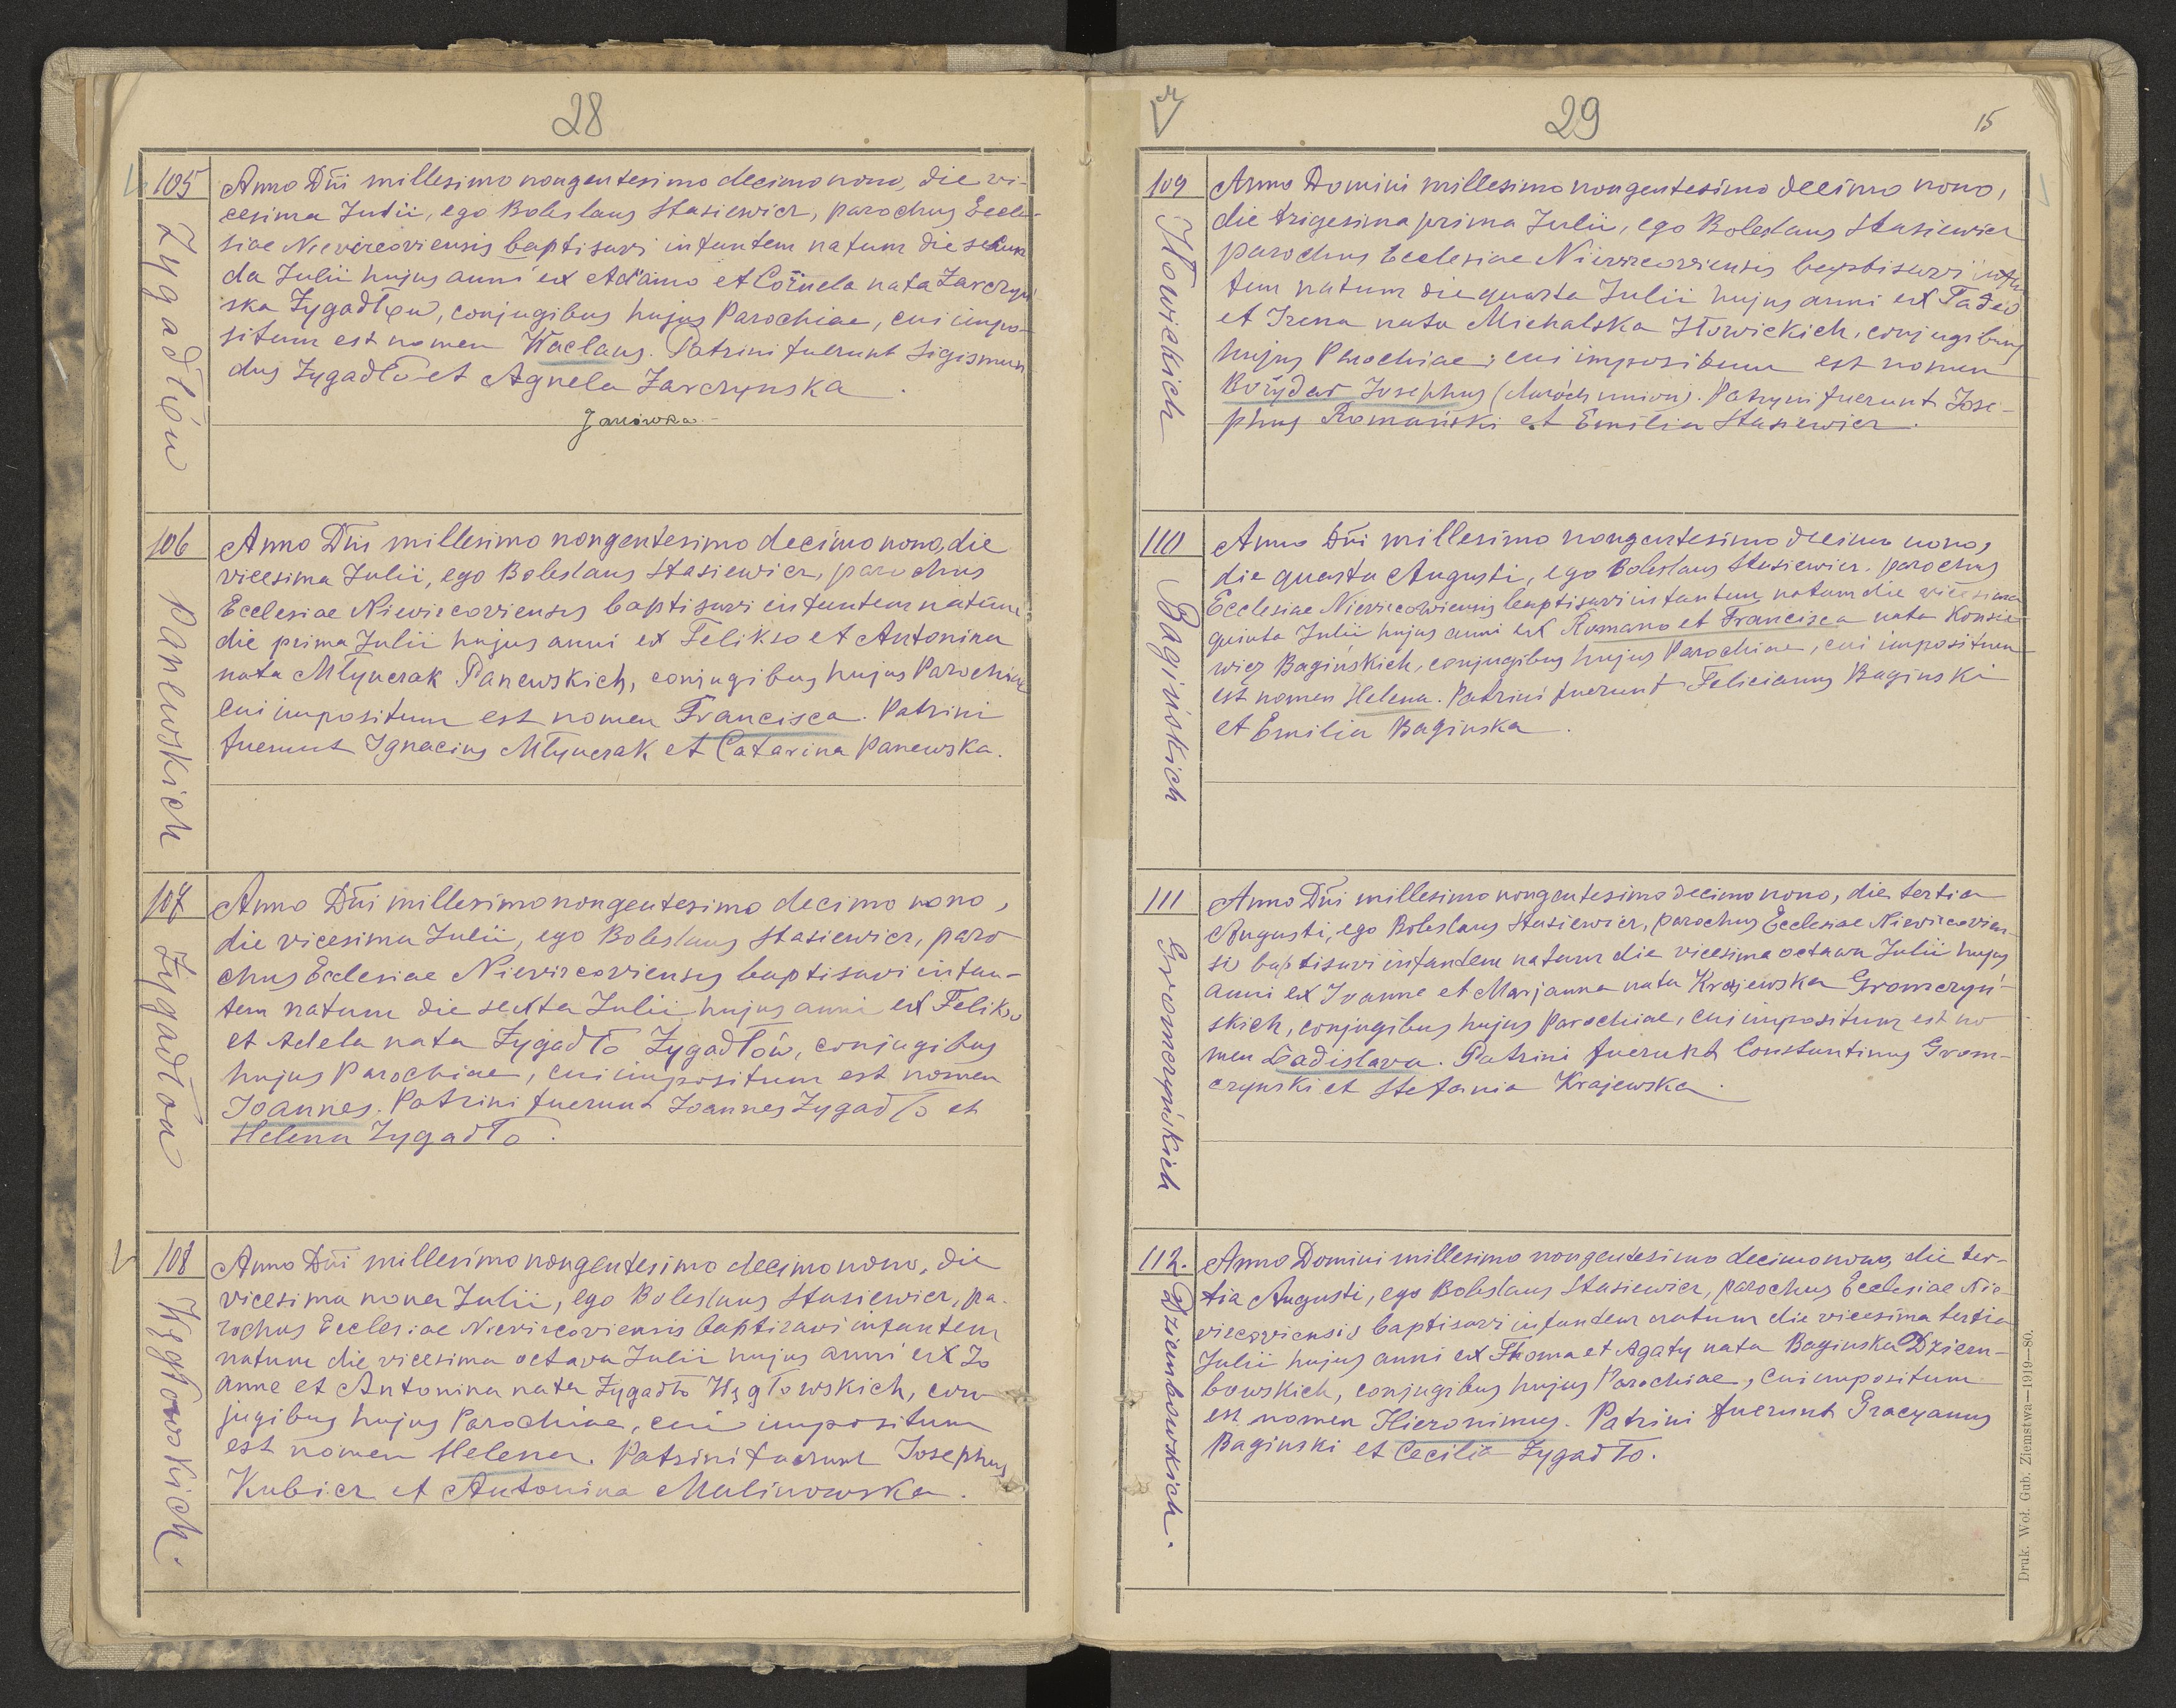 28
105
Zygadłów
Anno Dńi millesimo nongentesimo decimo nono, die vi-
cesima Julii, ego Boleslaus Stasiewicz, parochus Eccle-
siae Niewircoviensis baptisavi infantem natum die secun
da Julii hujus anni ex Adamo et Cornela nata Zarczyń
ska Zygadłów, conjugibus hujus Parochiae, cui impo-
situm est nomen Waclaus. Patrini fuerunt Sigismun
dus Zygadło et Agnela Zarczynska.
Janówka
106
Panewskich
Anno Dńi millesimo nongentesimo decimo nono, die
vicesima Julii, ego Boleslaus Stasiewicz, parochus
Ecclesiae Niewircoviensis baptisavi infantem natum
die prima Julii hujus anni ex Felikso et Antonina
nata Młynczak Panewskich, conjugibus hujus Parochiae
cui impositum est nomen Francisca. Patrini
fuerunt Ignacius Młynczak et Catarina Panewska.
107
Zygadłów
Anno Dńi millesimo nongentesimo decimo nono,
die vicesima Julii, ego Boleslaus Stasiewicz, paro
chus Ecclesiae Niewircoviensis baptisavi infan-
tem natum die sexta Julii hujus anni ex Felikso
et Adela nata Zygadło Zygadłów, conjugibus
hujus Parochiae, cui impositum est nomen
Joannes. Patrini fuerunt Joannes Zygadło et
Helena Zygadło.
108
Węgłowskich.
Anno Dńi millesimo nongentesimo decimo nono, die
vicesima nona Julii, ego Boleslaus Stasiewicz, pa-
rochus Ecclesiae Niewircoviensis baptizavi infantem
natum die vicesima octava Julii hujus anni ex Jo
anne et Antonina nata Zygadło Węgłowskich, con
jugibus hujus Parochiae, cui impositum
est nomen Helena. Patrini fuerunt Josephus
Kubicz et Antonina Malinowska.
29
15
109
Iłowickich
Anno Domini millesimo nongentesimo decimo nono,
die trigesima prima Julii, ego Boleslaus Stasiewicz
parochus Ecclesiae Niewircoviensis baptisavi infan
tem natum die quarta Julii hujus anni ex Tadeo
et Irena nata Michalska Iłowickich, conjugibus
hujus Parochiae, cui impositum est nomen
Božydar Josephus. Patryni fuerunt Jose-
phus Romański et Emilia Stasiewicz.
110
Bagińskich
Anno Dńi millesimo nongentesimo decimo nono,
die quarta Augusti, ego Boleslaus Stasiewicz, parochus
Ecclesiae Niewircowiensis baptisavi infantem natum die vicesima
quinta Julii hujus anni ex Romano et Francisca nata Konsie
wicz Bagińskich, conjugibus hujus Parochiae, cui impositum
est nomen Helena. Patrini fuerunt Felicianus Baginski
et Emilia Baginska.
111
Gromczyńskich
Anno Dńi millesimo nongentesimo decimo nono, die tertia
Augusti, ego Boleslaus Stasiewicz, parochus Ecclesiae Niewircovien-
sis baptisavi infandem natum die vicesima octava Julii hujus
anni ex Joanne et Marjanna nata Krajewska Gromczyń-
skich, conjugibus hujus Parochiae, cui impositum est no
men Ladislava. Patrini fuerunt Constantinus Grom-
czynski et Stefania Krajewska.
112.
Dziembowskich.
Anno Domini millesimo nongentesimo decimo nono, die ter-
tia Augusti, ego Boleslaus Stasiewicz, parochus Ecclesiae Nie-
vircoviensis baptisavi infandem natum die vicesima tertia
Julii hujus anni ex Thoma et Agaty nata Baginska Dziem-
bowskich, conjugibus hujus Parochiae, cui impositum
est nomen Hieronimus. Patrini fuerunt Gracyanus
Baginski et Cecilia Zygadło.
Druk. Woł. Gub. Ziemstwa—1919—80.